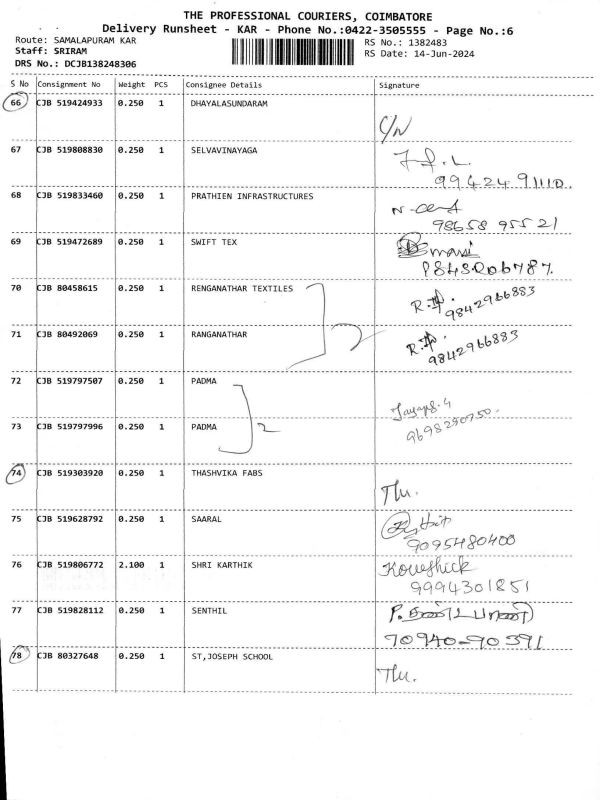 THE PROFESSIONAL COURIERS, COIMBATORE
Delivery Runsheet - KAR - Phone No.:0422-3505555 - Page No.:6
Route: SAMALAPURAM KAR
RS No.: 1382483
Staff: SRIRAM
RS Date: 14-Jun-2024
DRS No.: DCJB138248306
S No Consignment No Weight PCS Consignee Details Signature
66 CJB 519424933 0.250 1 DHAYALASUNDARAM
C/N
67 CJB 519808830 0.250 1 SELVAVINAYAGA
99424 91110.
68 CJB 519833460 0.250 1 PRATHIEN INFRASTRUCTURES
98658 95521
69 CJB 519472689 0.250 1 SWIFT TEX
70 CJB 80458615 0.250 1 RENGANATHAR TEXTILES
9842966883
71 CJB 80492069 0.250 1 RANGANATHAR
2
9842966883
72 CJB 519797507 0.250 1 PADMA
73 CJB 519797996 0.250 1 PADMA
2
9698290750.
74 CJB 519303920 0.250 1 THASHVIKA FABS
75 CJB 519628792 0.250 1 SAARAL
9095480400
76 CJB 519806772 2.100 1 SHRI KARTHIK
Koushick
9994301851
77 CJB 519828112 0.250 1 SENTHIL
P. தண்டபாணி
70940-90391
78 CJB 80327648 0.250 1 ST,JOSEPH SCHOOL